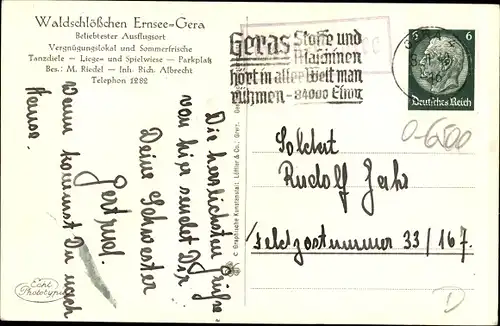 Waldschlößchen Ernsee-Gera
Beliebtester Ausflugsort
Vergnügungslokal und Sommerfrische
Tanzdiele — Liege- und Spielwiese — Parkplatz
Bes.: M. Riedel — Inh. Rich. Albrecht
Telephon 1282
Die herzlichsten Grüße
von hier sendet Dir
Deine Schwester
Gertrud.
Wann kommst Du nach
Hause.
Echt
Photographie
© Graphische Kunstanstalt Löffler & Co., Greiz.
Geras Stoffe und
Maschinen
hört in aller Welt man
rühmen - 84000 Einw.
GERA
6
6
Deutsches Reich
0-6500
Soldat
Rudolf Jahr
Feldpostnummer 33/167.
D